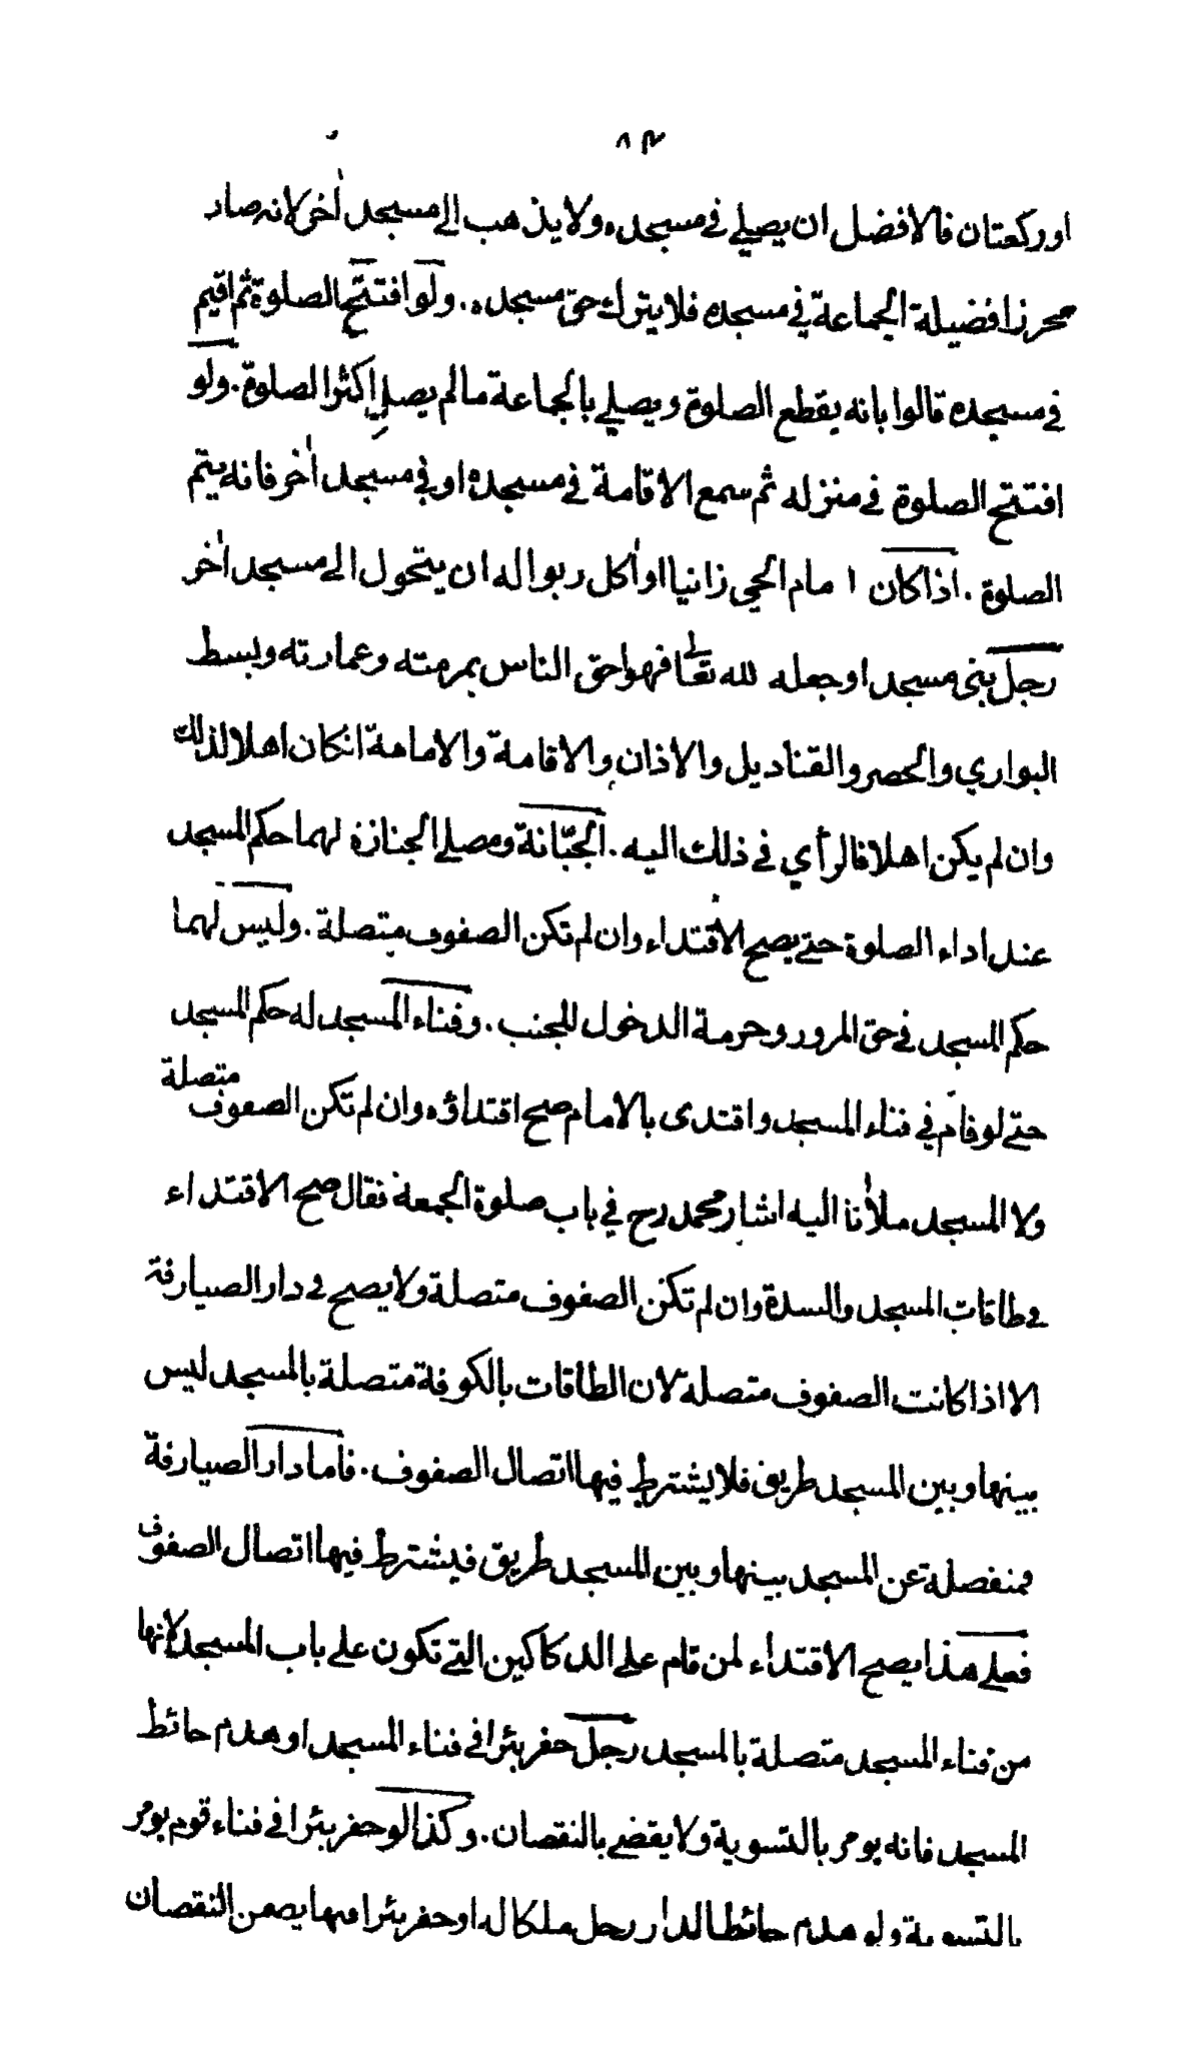 ٨٣
او ركعتان فالافضل ان يصيلے فے مسجده ولا يذهب الے مسجد اٰخر لانه صار
محرزا فضيلة الجماعة فے مسجده فلا يترك حق مسجده. ولو افتتح الصلوة ثم اقيم
فے مسجده قالوا بانه يقطع الصلوة ويصلے بالجماعة ما لم يصل اكثر الصلوة. ولو
افتتح الصلوة فے منزله ثم سمع الاقامة فے مسجده او فے مسجد اٰخر فانه يتم
الصلوة. اذا كان امام الحي زانيا او اٰكل ربوا له ان يتحول الے مسجد اٰخر
رجل بنى مسجدا وجعله لله تعالى فهو احق الناس بمرمته وعمارته وبسط
البواري والحصر والقناديل والاذان والاقامة والامامة انكان اهلا لذلك
وان لم يكن اهلا فالرأي فے ذلك اليه. الجبّانة ومصلے الجنازة لهما حكم المسجد
عند اداء الصلوة حتے يصح الاقتداء وان لم تكن الصفوف متصلة. وليس لهما
حكم المسجد فے حق المرور وحرمة الدخول للجنب. وفناء المسجد له حكم المسجد
حتے لو قام فے فناء المسجد واقتدى بالامام صح اقتداؤه وان لم تكن الصفوف متصلة
ولا المسجد ملاٰنا اليه اشار محمد رح فے باب صلوة الجمعة فقال صح الاقتداء
فے طاقات المسجد والسدة وان لم تكن الصفوف متصلة ولا يصح فے دار الصيارفة
الا اذا كانت الصفوف متصلة لان الطاقات بالكوفة متصلة بالمسجد ليس
بينها وبين المسجد طريق فلا يشترط فيها اتصال الصفوف. فاما دار الصيارفة
فمنفصلة عن المسجد بينها وبين المسجد طريق فيشترط فيها اتصال الصفوف
فعلے هذا يصح الاقتداء لمن قام علے الدكاكين التے تكون علے باب المسجد لانها
من فناء المسجد متصلة بالمسجد رجل حفر بئرا فے فناء المسجد او هدم حائط
المسجد فانه يومر بالتسوية ولا يقضے بالنقصان. وكذا لو حفر بئرا فے فناء قوم يومر
بالتسوية ولو هدم حائطا لدار رجل ملكا له او حفر بئرا فيها يضمن النقصان